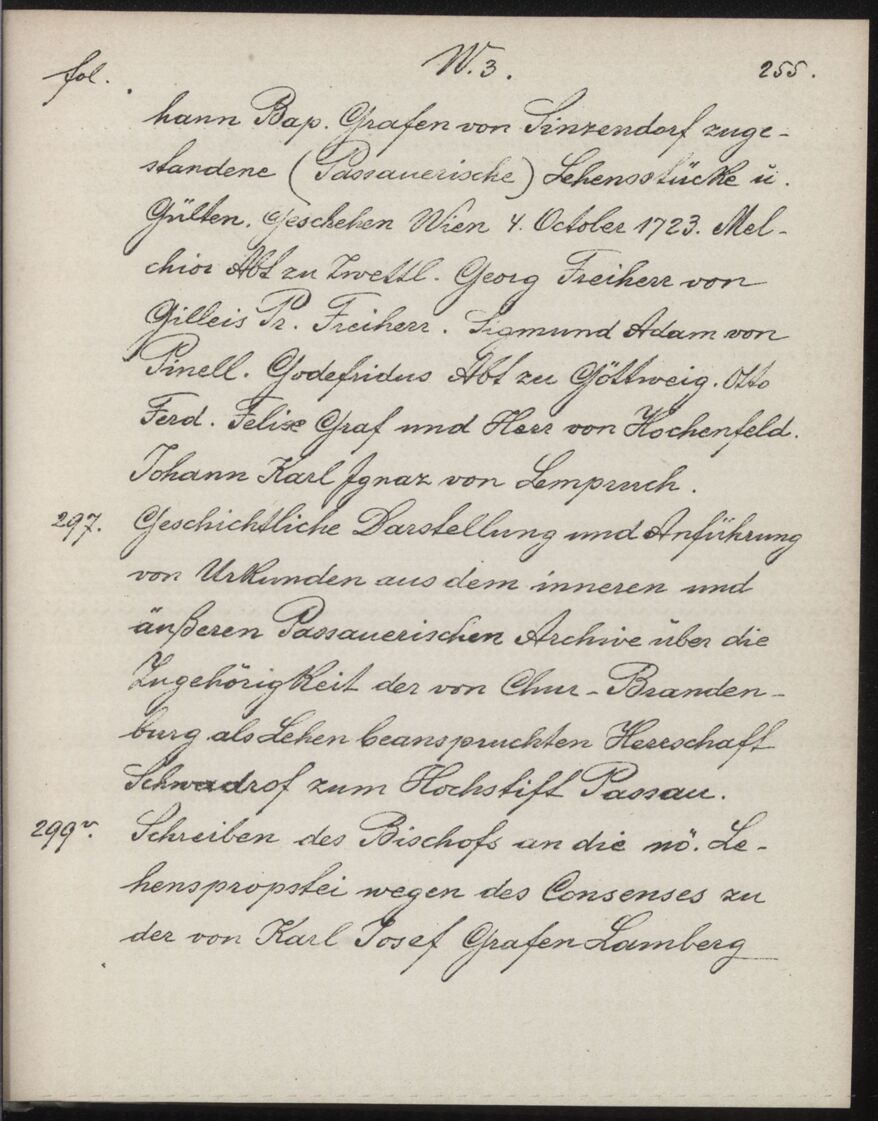 fol. W. 3. 255.
hann Bap. Grafen von Sinzendorf zuge-
standene (Passauerische) Lehensstücke u.
Gülten. Geschehen Wien 4. October 1723. Mel-
chior Abt zu Zwettl. Georg Freiherr von
Gilleis Pr. Freiherr. Sigmund Adam von
Pinell. Godefridus Abt zu Göttweig. Otto
Ferd. Felix Graf und Herr von Hochenfeld.
Johann Karl Ignaz von Lempruch.
297. Geschichtliche Darstellung und Anführung
von Urkunden aus dem inneren und
äußeren Passauerischen Archive über die
Zugehörigkeit der von Chur-Branden-
burg als Lehen beanspruchten Herrschaft
Schwadrof zum Hochstift Passau.
299v. Schreiben des Bischofs an die nö. Le-
henspropstei wegen des Consenses zu
der von Karl Josef Grafen Lamberg